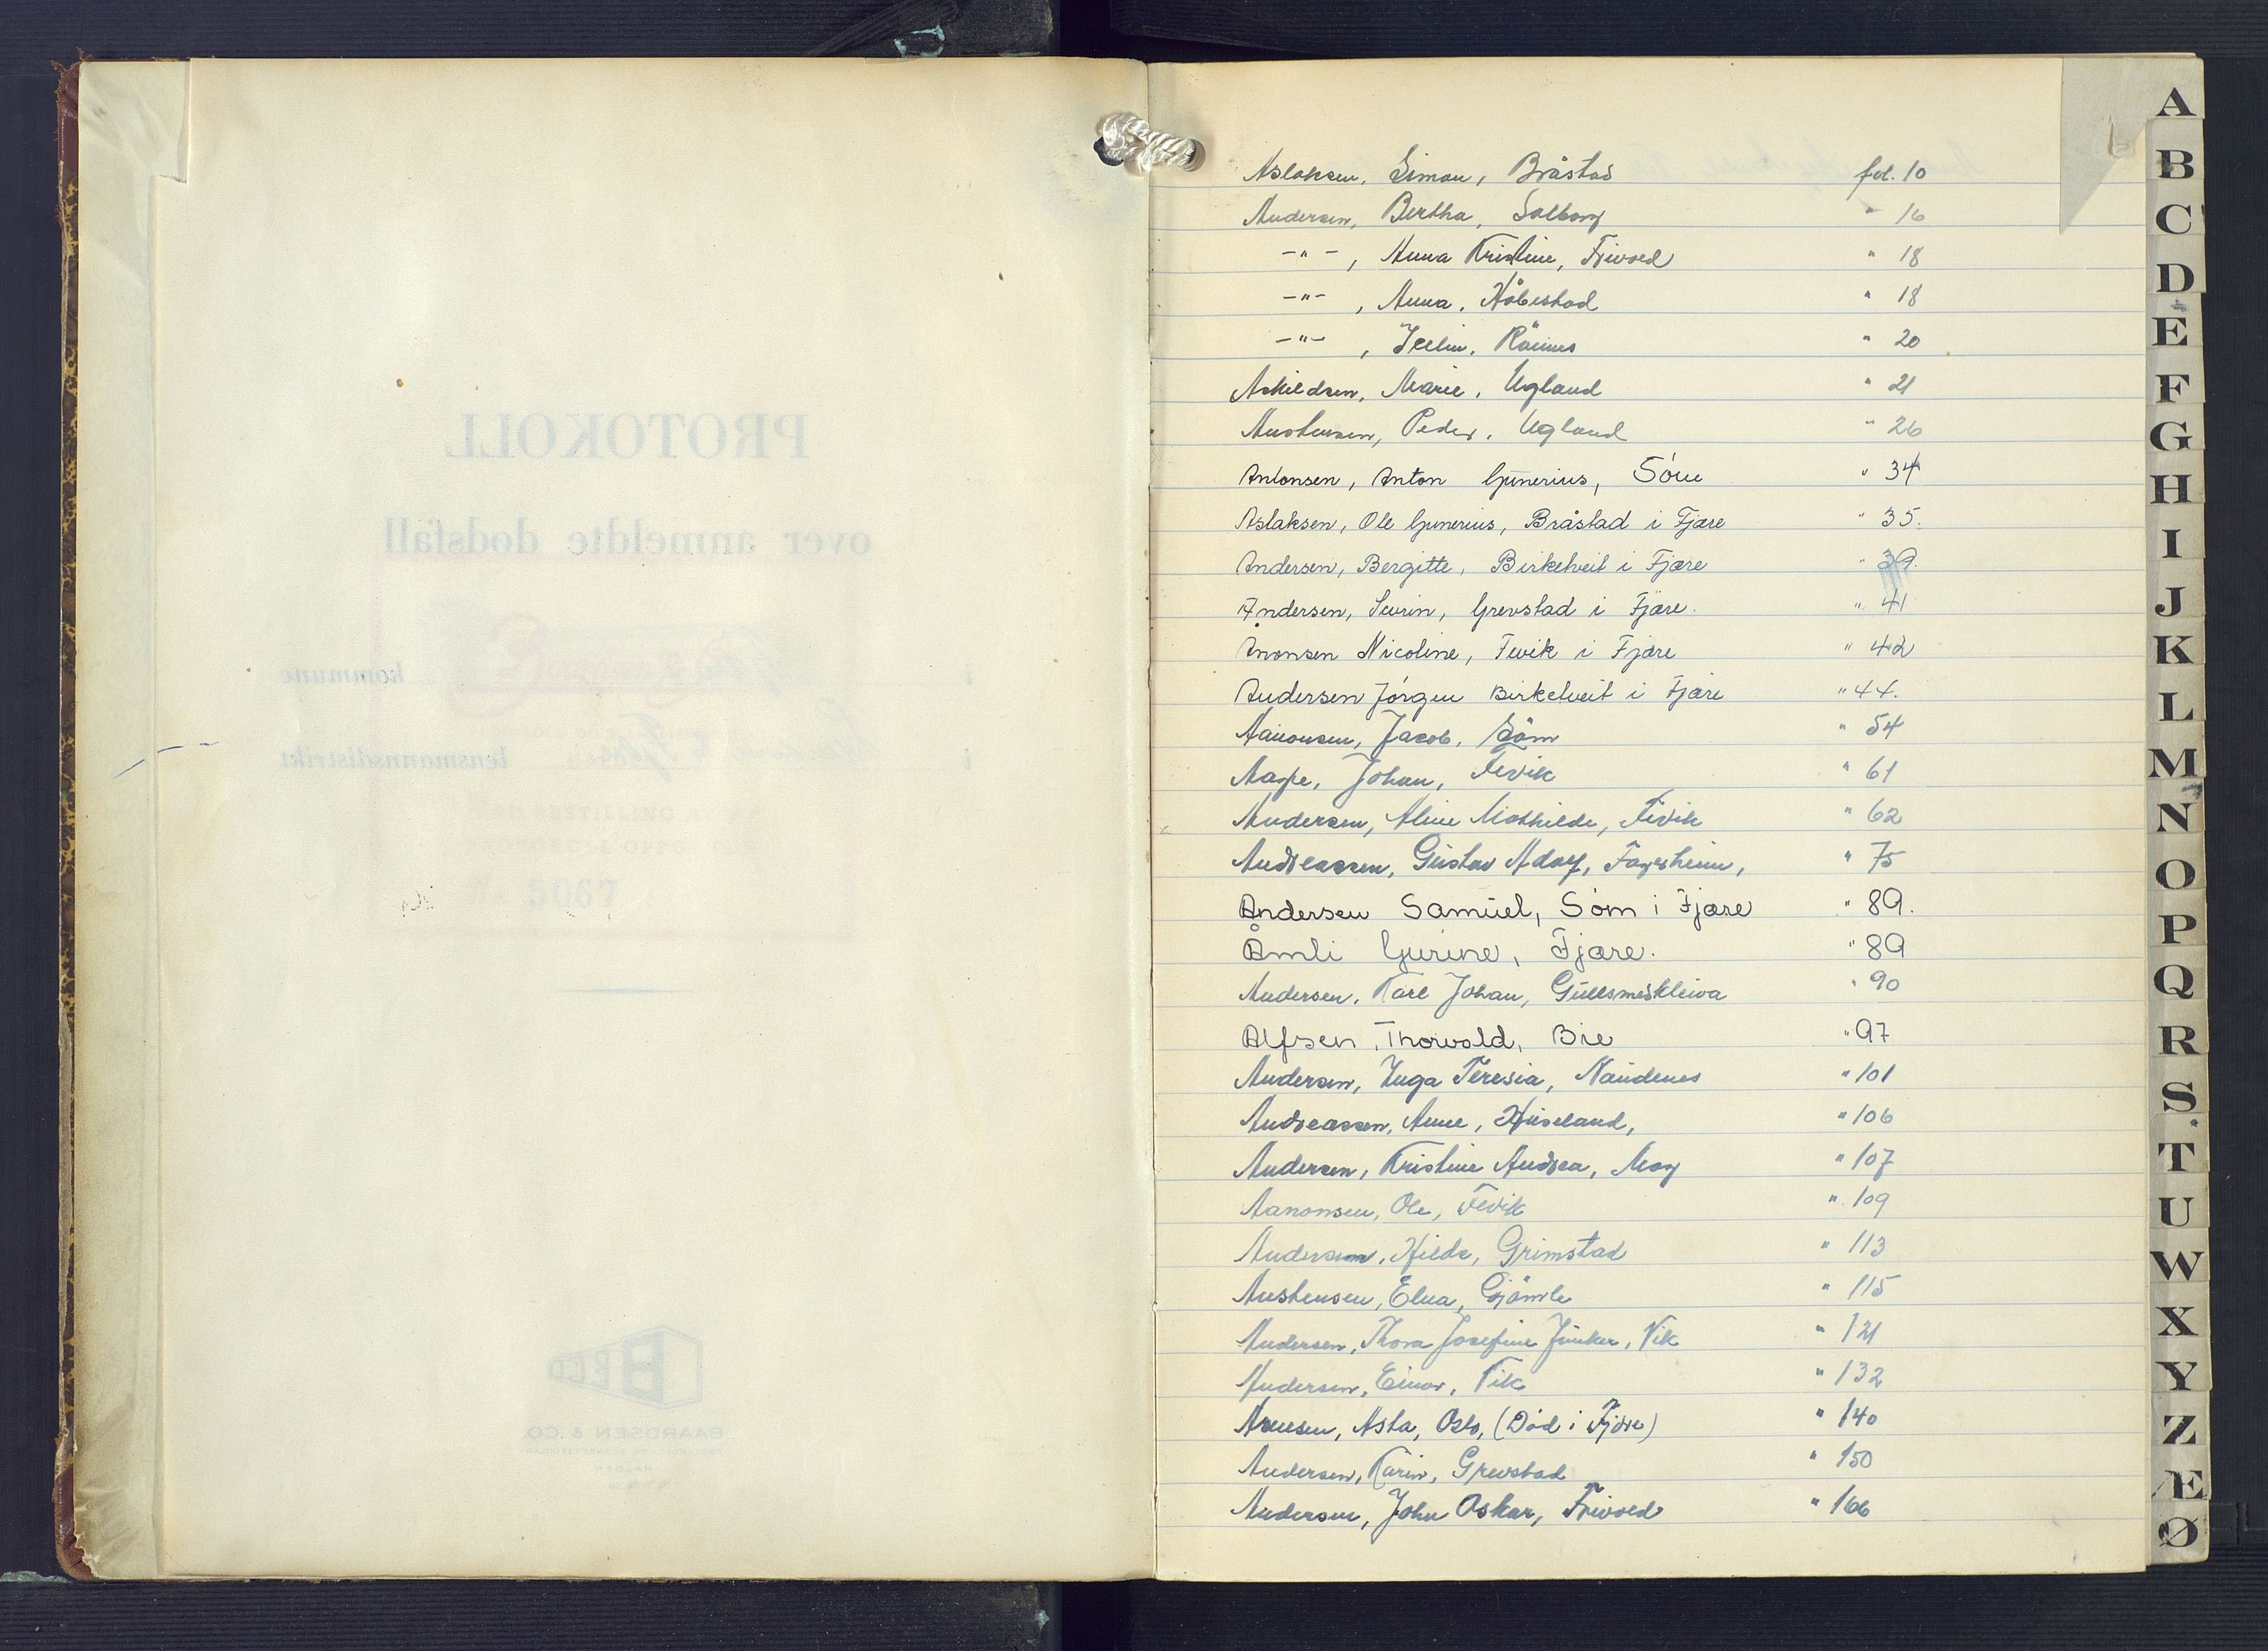 PROTOKOLL
over anmeldte dødsfall
i kommune
i lensmannsdistrikt
5067
BAARDSEN & CO.
HALDEN
Aslaksen, Simon, Bråstad fol. 10
Andersen, Bertha, Solborg " 16
-"- , Anna Kristine, Frivold " 18
-"- , Anna, Håbestad " 18
-"- , Rönnes " 20
Askildsen, Marie, Ugland " 21
Austensen, Peder, Ugland " 26
Antonsen, Anton Gunerius, Söm " 34
Aslaksen, Ole Gunerius, Bråstad i Fjære " 35.
Andersen, Bergitte, Birketveit i Fjære " 39.
Andersen, Sevrin, Grevstad i Fjære. " 41
Ånonsen Nicoline, Fevik i Fjære " 42
Andersen Jörgen Birketveit i Fjære " 44.
Aanonsen, Jacob, Söm " 54
Aaspe, Johan, Fevik " 61
Andersen, Aline Mathilde, Fevik " 62
Andreassen, Gustav Adolf, Fagerheim, " 75
Andersen Samuel, Söm i Fjære " 89.
Åmli Gurine, Fjære. " 89
Andersen, Karl Johan, Gullsmedkleiva " 90
Alfsen, Thorvald, Bie " 97
Andersen, Inga Teresia, Naudenes " 101
Andreassen, Anne, Huseland, " 106
Andersen, Kristine Andrea, Moy " 107
Aanonsen, Ole, Fevik " 109
Andersen, Hilda, Grimstad " 113
Austensen, Elna, Gjömle " 115
Andersen, Thora Josefine Junker, Vik " 121
Andersen, Einar, Vik " 132
Arensen, Asta, Oslo, (Död i Fjære) " 140
Andersen, Karin, Grevstad " 150
Andersen, John Oskar, Frivold " 166
A
B
C
D
E
F
G
H
I
J
K
L
M
N
O
P
Q
R
S
T
U
W
X
Y
Z
Æ
Ø